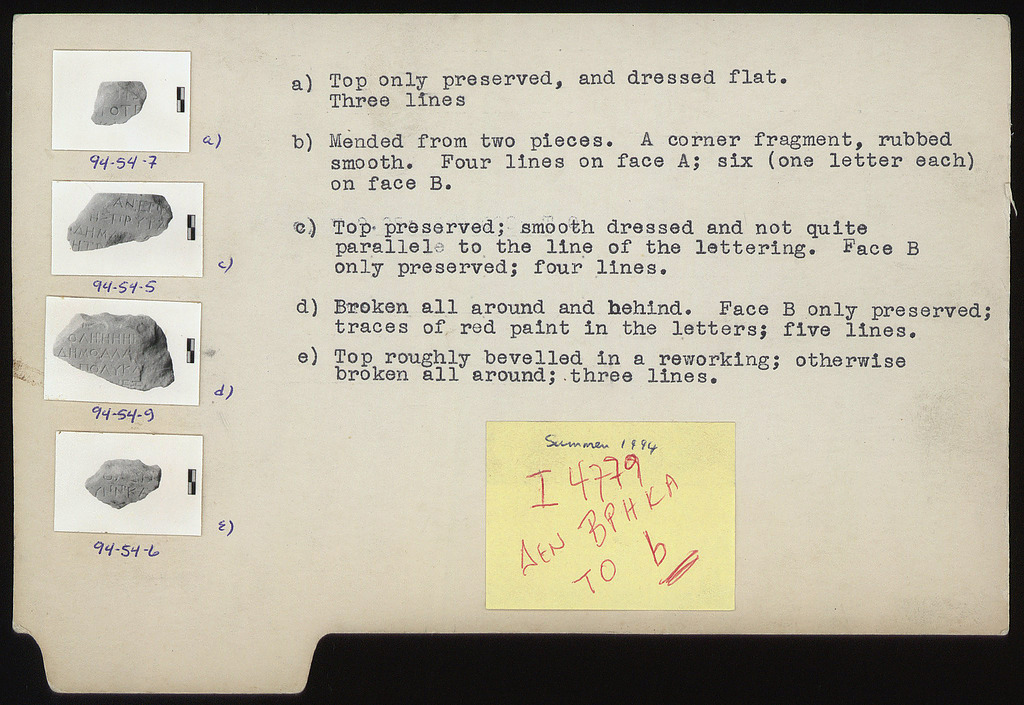 a) Top only preserved, and dressed flat.
Three lines
b) Mended from two pieces. A corner fragment, rubbed
smooth. Four lines on face A; six (one letter each)
on face B.
c) Top preserved; smooth dressed and not quite
parallel to the line of the lettering. Face B
only preserved; four lines.
d) Broken all around and behind. Face B only preserved;
traces of red paint in the letters; five lines.
e) Top roughly bevelled in a reworking; otherwise
broken all around; three lines.
a)
94-54-7
c)
94-54-5
d)
94-54-9
ε)
94-54-6
Summer 1994
I 4779
ΔΕΝ ΒΡΗΚΑ
ΤΟ b